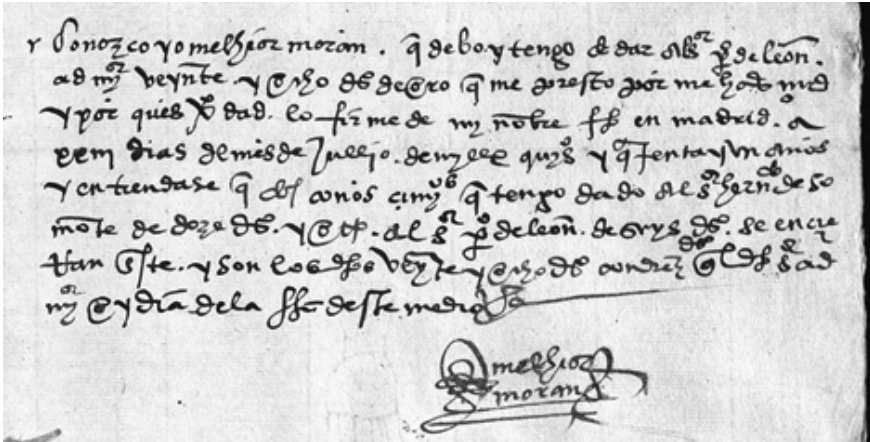 Conozco yo melchior moran. q debo y tengo de dar al sor po de leon.
ad mor veynte y ocho ds de oro q me presto por me hazer md
y por qués vdad. lo firme de my nombre fho en madrid. a
xxiii dias de mes de Jullio. de myll e quys y qrenta y un años
y entiendase q conos q tengo dado al sor herndo de so
monte de doze ds. y otro. al sor po de leon. de seys ds. se encie
rran en este. y son los dhos veynte y ocho ds dho sor ad
mor oy dia de la fha deste
melchior
moran